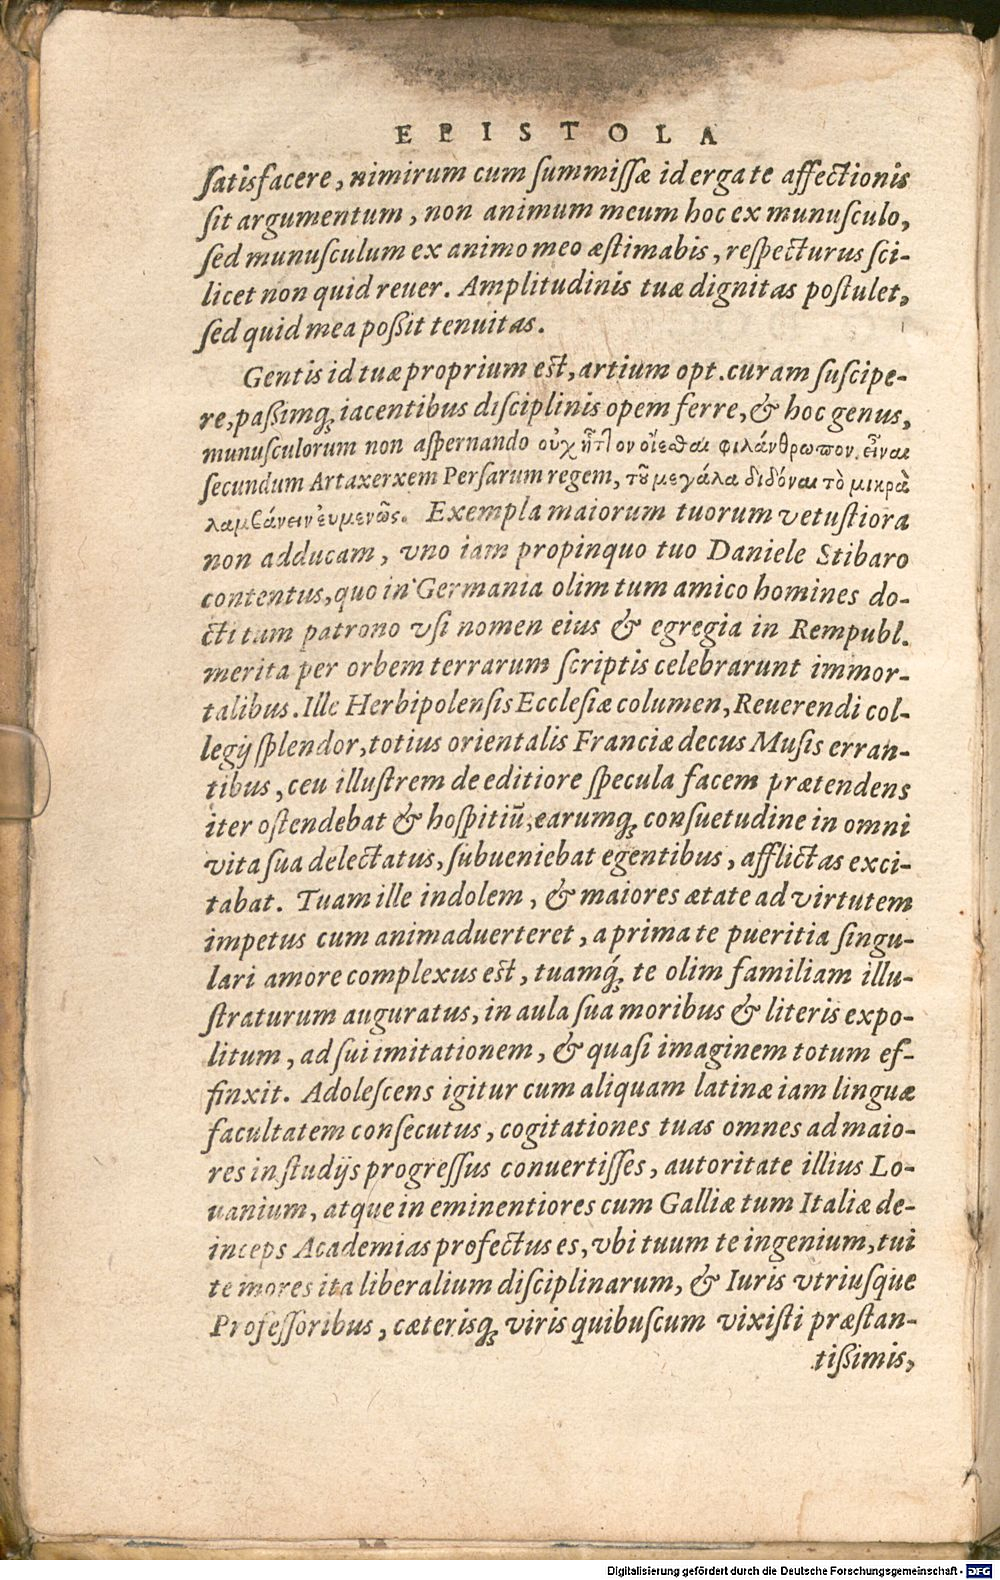 EPISTOLA
ſatisfacere, nimirum cum ſummiſſæ id erga te affectionis
ſit argumentum, non animum meum hoc ex munuſculo,
ſed munuſculum ex animo meo æſtimabis, reſpecturus ſci-
licet non quid reuer. Amplitudinis tuæ dignitas poſtulet,
ſed quid mea poßit tenuitas.
Gentis id tuæ proprium eſt, artium opt. curam ſuſcipe-
re, paßimq́; iacentibus diſciplinis opem ferre, & hoc genus,
munuſculorum non aſpernando οὐχ ἧττον οἴεσθαι φιλάνθρωπον εἶναι
ſecundum Artaxerxem Perſarum regem, τοῦ μεγάλα διδόναι τὸ μικρὰ
λαμβάνειν εὐμενῶς. Exempla maiorum tuorum vetuſtiora
non adducam, vno iam propinquo tuo Daniele Stibaro
contentus, quo in Germania olim tum amico homines do-
cti tum patrono vſi nomen eius & egregia in Rempubl.
merita per orbem terrarum ſcriptis celebrarunt immor-
talibus. Ille Herbipolenſis Eccleſiæ columen, Reuerendi col-
legij ſplendor, totius orientalis Franciæ decus Muſis erran-
tibus, ceu illuſtrem de editiore ſpecula facem prætendens
iter oſtendebat & hoſpitiū, earumq; conſuetudine in omni
vita ſua delectatus, ſubueniebat egentibus, afflictas exci-
tabat. Tuam ille indolem, & maiores ætate ad virtutem
impetus cum animaduerteret, a prima te pueritia ſingu-
lari amore complexus eſt, tuamq́; te olim familiam illu-
ſtraturum auguratus, in aula ſua moribus & literis expo-
litum, ad ſui imitationem, & quaſi imaginem totum ef-
finxit. Adoleſcens igitur cum aliquam latinæ iam linguæ
facultatem conſecutus, cogitationes tuas omnes ad maio-
res in ſtudijs progreſſus conuertiſſes, autoritate illius Lo-
uanium, atque in eminentiores cum Galliæ tum Italiæ de-
inceps Academias profectus es, vbi tuum te ingenium, tui
te mores ita liberalium diſciplinarum, & Iuris vtriusque
Profeſſoribus, cæterisq; viris quibuſcum vixiſti præſtan-
tißimis,
Digitalisierung gefördert durch die Deutsche Forschungsgemeinschaft - DFG